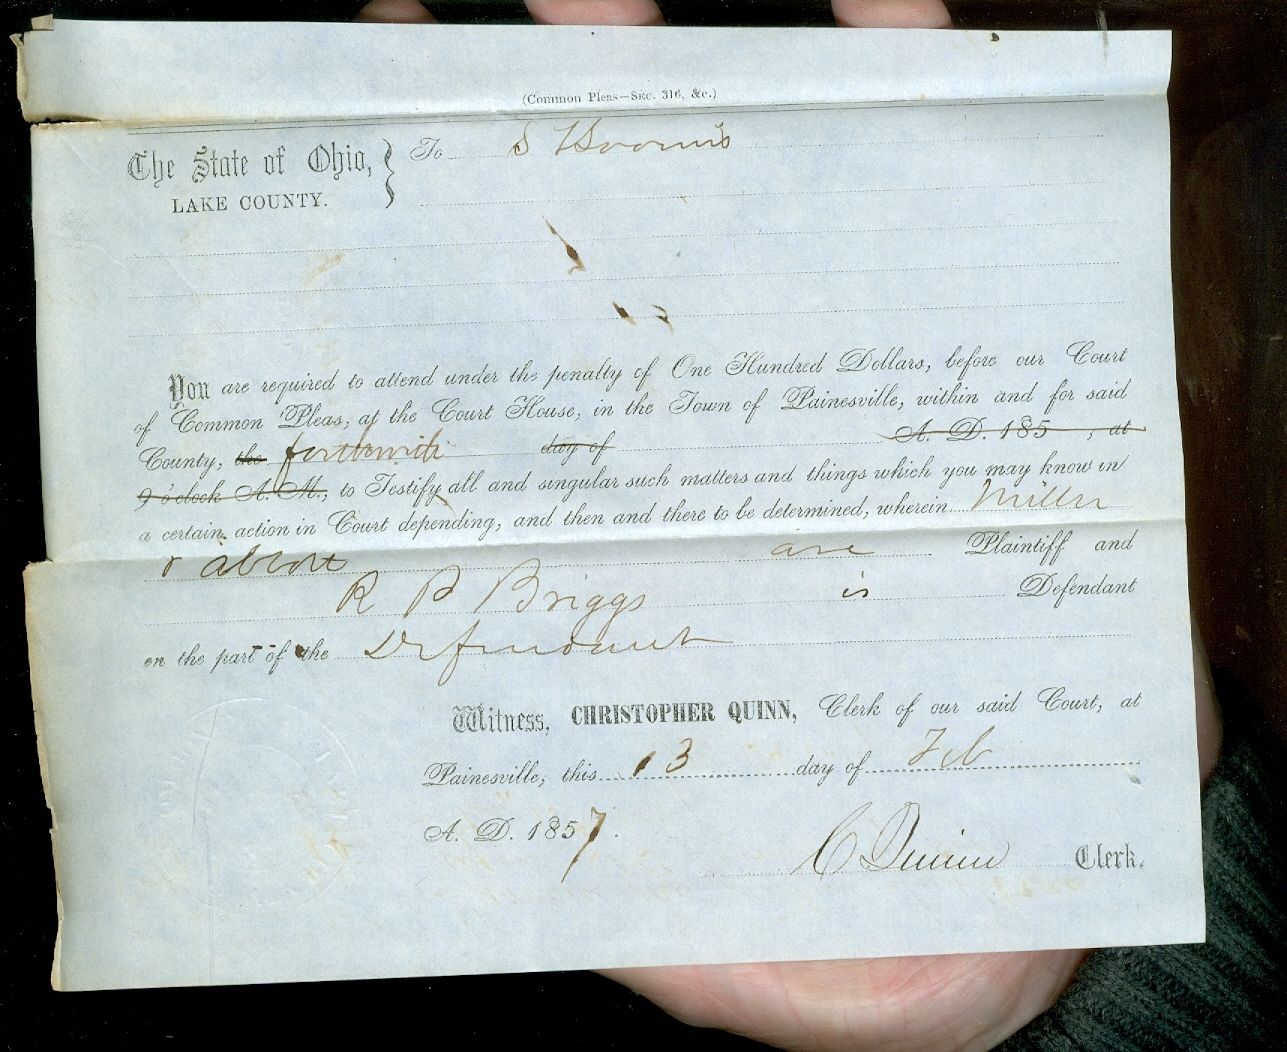 (Common Pleas—Sec. 316, &c.)
The State of Ohio, } To S
LAKE COUNTY.
You are required to attend under the penalty of One Hundred Dollars, before our Court
of Common Pleas, at the Court House, in the Town of Painesville, within and for said
County, the forthwith day of A. D. 185 , at
9 o'clock A. M., to Testify all and singular such matters and things which you may know in
a certain action in Court depending, and then and there to be determined, wherein Miller
& Abbott are Plaintiff and
R B Briggs is Defendant
on the part of the Defendant
Witness, CHRISTOPHER QUINN, Clerk of our said Court, at
Painesville, this 13 day of Feb
A. D. 1857.
C Quinn Clerk.